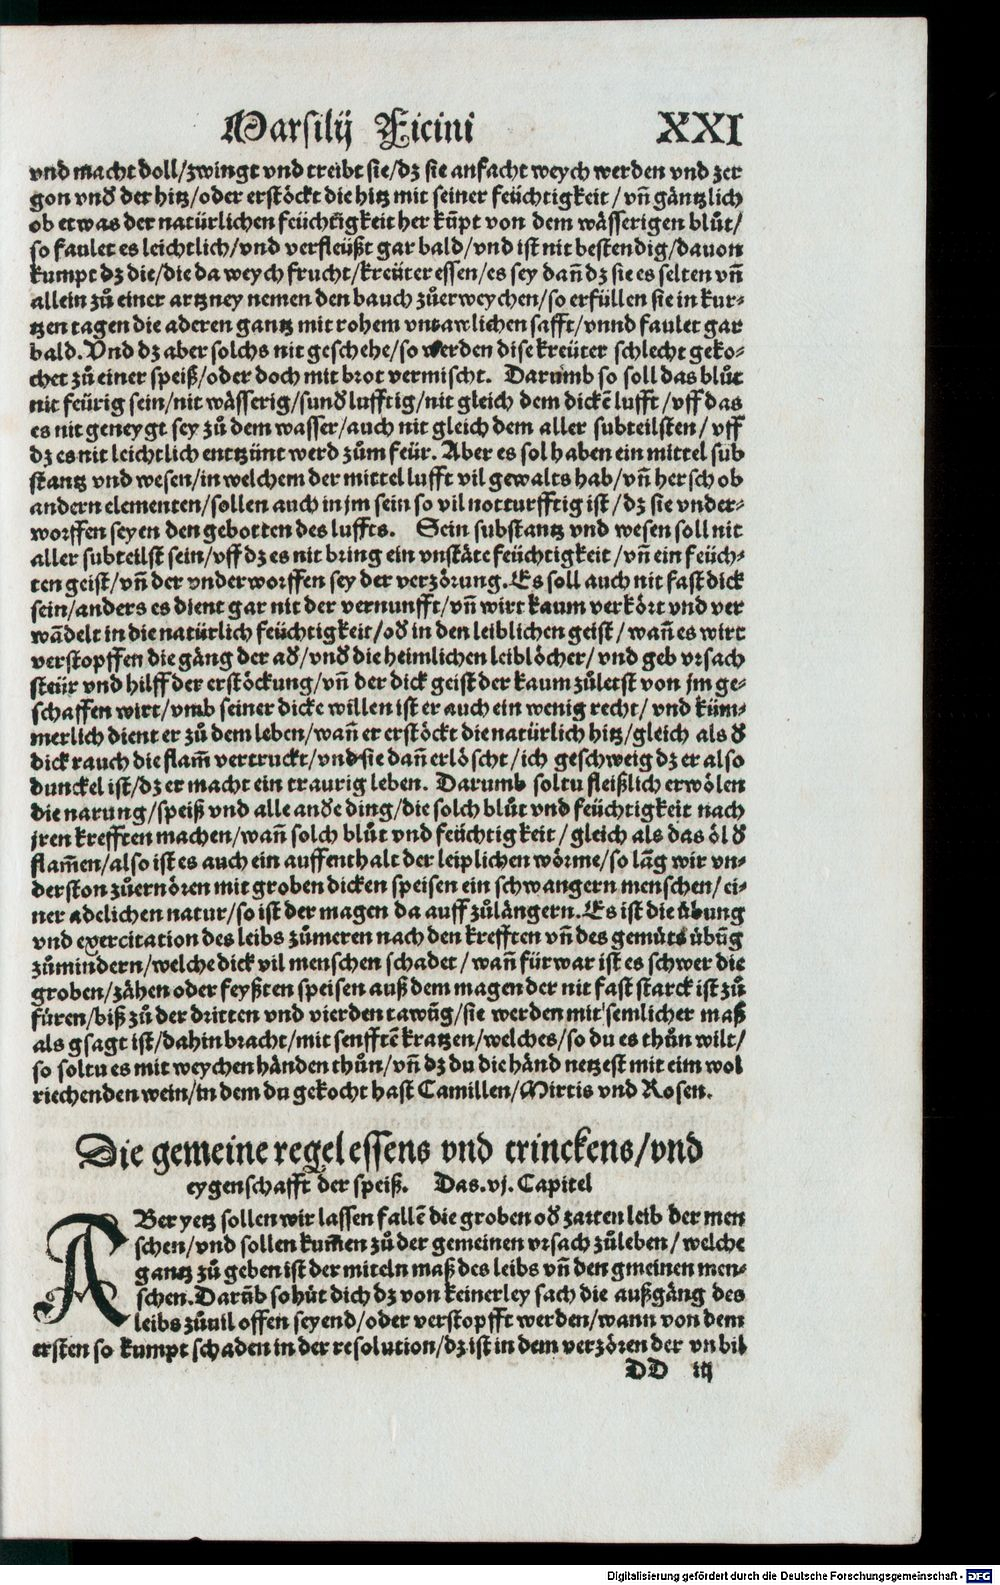 Marsilij Ficini XXI
vnd macht doll/zwingt vnd treibt sie/dz sie anfacht weych werden vnd zer
gon vnd der hitz/oder erstöckt die hitz mit seiner feüchtigkeit/vñ gäntzlich
ob etwas der natürlichen feüchtigkeit her kũpt von dem wässerigen blůt/
so faulet es leichtlich/vnd verfleüßt gar bald/vnd ist nit bestendig/dauon
kumpt dz die/die da weych frucht/kreüter essen/es sey dañ dz sie es selten vñ
allein zů einer artzney nemen den bauch zůerweychen/so erfüllen sie in kur-
tzen tagen die aderen gantz mit rohem vntawlichen safft/vnnd faulet gar
bald. Vnd dz aber solchs nit geschehe/so werden dise kreüter schlecht geko-
chet zů einer speiß/oder doch mit brot vermischt. Darumb so soll das blůt
nit feürig sein/nit wässerig/sund lufftig/nit gleich dem dickẽ lufft/vff das
es nit geneygt sey zů dem wasser/auch nit gleich dem aller subteilsten/vff
dz es nit leichtlich entzünt werd zům feür. Aber es sol haben ein mittel sub
stantz vnd wesen/in welchem der mittel lufft vil gewalts hab/vñ hersch ob
andern elementen/sollen auch in jm sein so vil notturfftig ist/dz sie vnder-
worffen seyen den gebotten des luffts. Sein substantz vnd wesen soll nit
aller subteilst sein/vff dz es nit bring ein vnstäte feüchtigkeit/vñ ein feüch-
ten geist/vñ der vnderworffen sey der verzörung. Es soll auch nit fast dick
sein/anders es dient gar nit der vernunfft/vñ wirt kaum verkört vnd ver
wãdelt in die natürlich feüchtigkeit/od in den leiblichen geist/wañ es wirt
verstopffen die gäng der ad/vnd die heimlichen leiblöcher/vnd geb vrsach
steür vnd hilff der erstöckung/vñ der dick geist der kaum zůletst von jm ge-
schaffen wirt/vmb seiner dicke willen ist er auch ein wenig recht/vnd küm-
merlich dient er zů dem leben/wañ er erstöckt die natürlich hitz/gleich als d
dick rauch die flam̃ vertruckt/vnd sie dañ erlöscht/ich geschweig dz er also
dunckel ist/dz er macht ein traurig leben. Darumb soltu fleißlich erwölen
die narung/speiß vnd alle ande ding/die solch blůt vnd feüchtigkeit nach
jren krefften machen/wañ solch blůt vnd feüchtigkeit/gleich als das öl d
flam̃en/also ist es auch ein auffenthalt der leiplichen wörme/so lãg wir vn-
derston zůernören mit groben dicken speisen ein schwangern menschen/ei-
ner adelichen natur/so ist der magen da auff zůlängern. Es ist die übung
vnd exercitation des leibs zůmeren nach den krefften vñ des gemüts übũg
zůmindern/welche dick vil menschen schadet/wañ fürwar ist es schwer die
groben/zähen oder feyßten speisen auß dem magen der nit fast starck ist zů
füren/biß zů der dritten vnd vierden tawũg/sie werden mit semlicher maß
als gsagt ist/dahin bracht/mit senfftẽ kratzen/welches/so du es thůn wilt/
so soltu es mit weychen händen thůn/vñ dz du die händ netzest mit eim wol
riechenden wein/in dem du gekocht hast Camillen/Mirtis vnd Rosen.
Die gemeine regel essens vnd trinckens/vnd
eygenschafft der speiß. Das.vj. Capitel
ABer yetz sollen wir lassen fallẽ die groben od zarten leib der men
schen/vnd sollen kum̃en zů der gemeinen vrsach zůleben/welche
gantz zů geben ist der miteln maß des leibs vñ den gmeinen men-
schen. Darũb so hüt dich dz von keinerley sach die außgäng des
leibs zůuil offen seyend/oder verstopfft werden/wann von dem
ersten so kumpt schaden in der resolution/dz ist in dem verzören der vnbil
DD iij
Digitalisierung gefördert durch die Deutsche Forschungsgemeinschaft - DFG